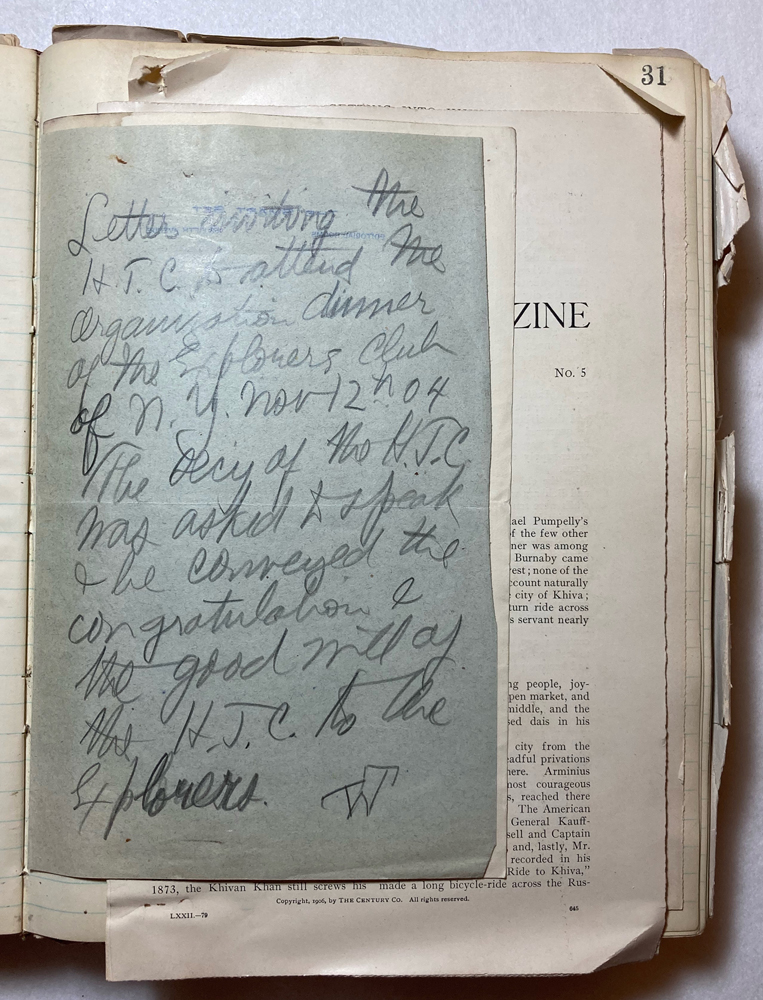 31
Letter inviting the
H.T.C. to attend the
Organization dinner
of the Explorers Club
of N.Y. Nov 12th 04
The Secy of the H.T.C.
was asked to speak
& he conveyed the
congratulation &
the good will of
the H.T.C. to the
Explorers.
ZINE
No. 5
ael Pumpelly's
of the few other
ner was among
Burnaby came
est; none of the
ccount naturally
city of Khiva;
turn ride across
s servant nearly
ng people, joy-
pen market, and
middle, and the
sed dais in his
city from the
eadful privations
here. Arminius
most courageous
s, reached there
The American
General Kauff-
sell and Captain
and, lastly, Mr.
recorded in his
Ride to Khiva,"
1873, the Khivan Khan still screws his made a long bicycle-ride across the Rus-
Copyright, 1906, by THE CENTURY CO. All rights reserved.
LXXII.—79
645